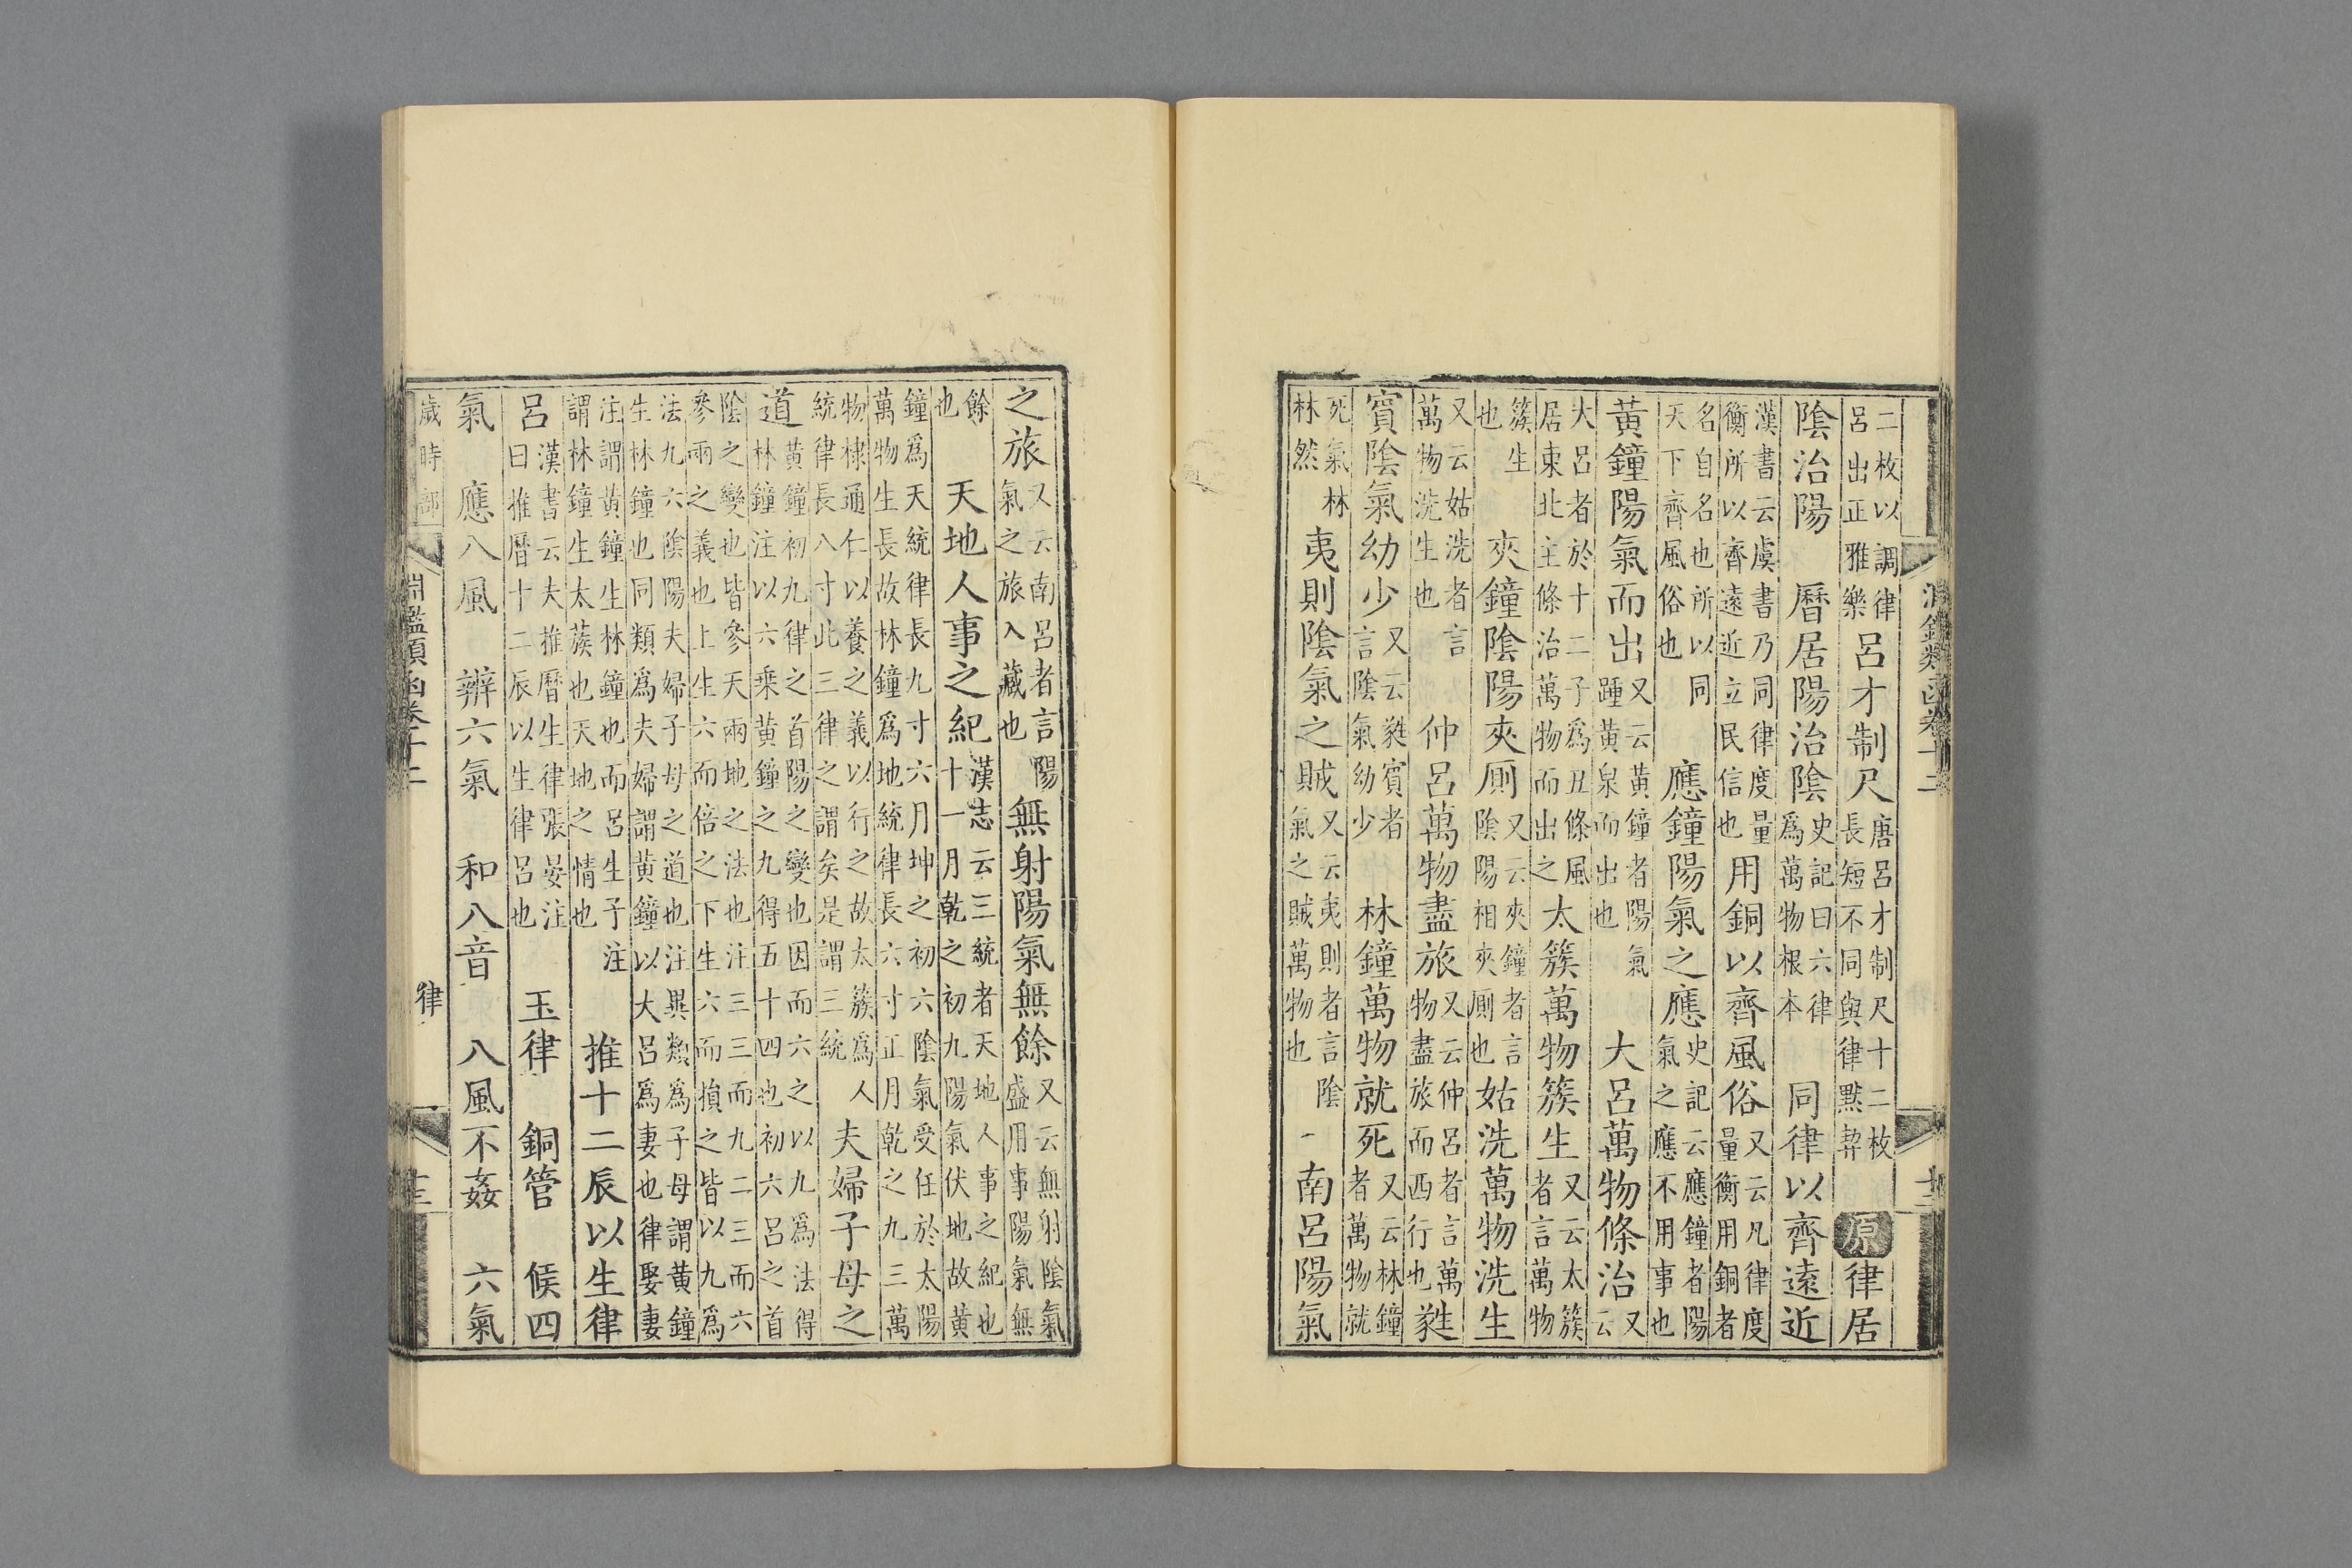 淵鑑類函卷十二
二枚以調律
呂出正雅樂
呂才制尺
唐呂才制尺十二枚
長短不同與律黙契
原律居
陰治陽　曆居陽治陰
史記曰六律
爲萬物根本
同律以齊遠近
漢書云虞書乃同律度量
衡所以齊遠近立民信也
用銅以齊風俗
又云凡律度
量衡用銅者
名自名也所以同
天下齊風俗也
應鐘陽氣之應
史記云應鐘者陽
氣之應不用事也
黃鐘陽氣而出
又云黃鐘者陽氣
踵黃泉而出也
大呂萬物條治
又
云
大呂者於十二子爲丑條風
居東北主條治萬物而出之
太簇萬物簇生
又云太簇
者言萬物
簇生
也
夾鐘陰陽夾厠
又云夾鐘者言
陰陽相夾厠也
姑洗萬物洗生
又云姑洗者言
萬物洗生也
仲呂萬物盡旅
又云仲呂者言萬
物盡旅而西行也
蕤
賓陰氣幼少
又云蕤賓者
言陰氣幼少
林鐘萬物就死
又云林鐘
者萬物就
死氣林
林然
夷則陰氣之賊
又云夷則者言陰
氣之賊萬物也
南呂陽氣
之旅
又云南呂者言陽
氣之旅入藏也
無射陽氣無餘
又云無射陰氣
盛用事陽氣無
餘
也
天地人事之紀
漢志云三統者天地人事之紀也
十一月乾之初九陽氣伏地故黃
鐘爲天統律長九寸六月坤之初六陰氣受任於太陽
萬物生長故林鐘爲地統律長六寸正月乾之九三萬
物棣通仁以養之義以行之故太簇爲人
統律長八寸此三律之謂矣是謂三統
夫婦子母之
道
黃鐘初九律之首陽之變也因而六之以九爲法得
林鐘注以六乘黃鐘之九得五十四也初六呂之首
陰之變也皆參天兩地之法也注三三而九二三而六
參兩之義也上生六而倍之下生六而損之皆以九爲
法九六陰陽夫婦子母之道也注異類爲子母謂黃鐘
生林鐘也同類爲夫婦謂黃鐘以大呂爲妻也律娶妻
注謂黃鐘生林鐘也而呂生子注
謂林鐘生太蔟也天地之情也
推十二辰以生律
呂
漢書云夫推曆生律張晏注
曰推曆十二辰以生律呂也
玉律　銅管　候四
氣　應八風　辨六氣　和八音　八風不姦　六氣
歲時部　淵鑑類函卷十二　律　十三